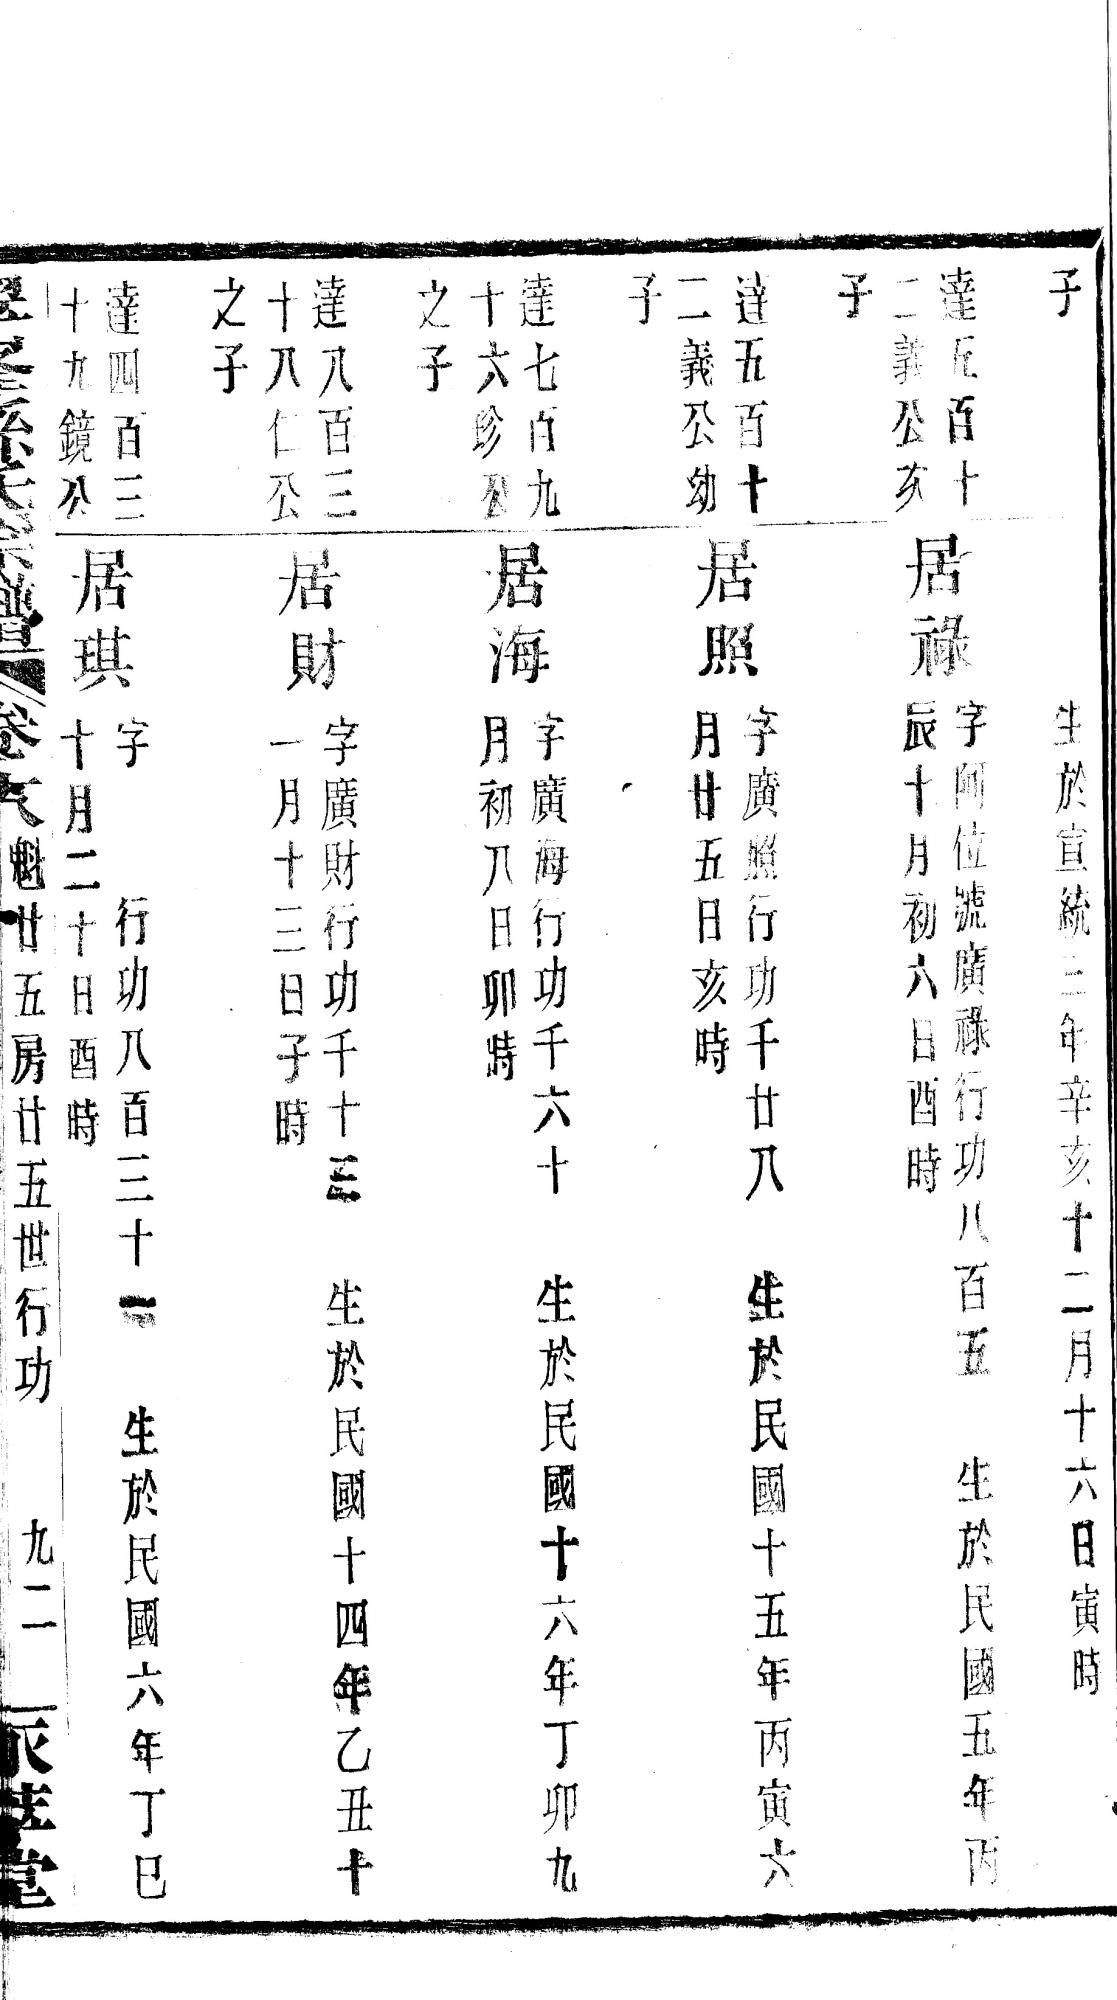 子
生於宣統三年辛亥十二月十六日寅時
達五百十
二義公亥
子
居祿
字阿位號廣祿行功八百五 生於民國五年丙
辰十月初六日酉時
達五百十
二義公幼
子
居照
字廣照行功千廿八 生於民國十五年丙寅六
月廿五日亥時
達七百九
十六珍公
之子
居海
字廣海行功千六十 生於民國十六年丁卯九
月初八日卯時
達八百三
十八仁公
之子
居財
字廣財行功千十三 生於民國十四年乙丑十
一月十三日子時
達四百三
十九鏡公
居琪
字 行功八百三十一 生於民國六年丁巳
十月二十日酉時
宗譜 卷 魁廿五房廿五世行功 九二 堂